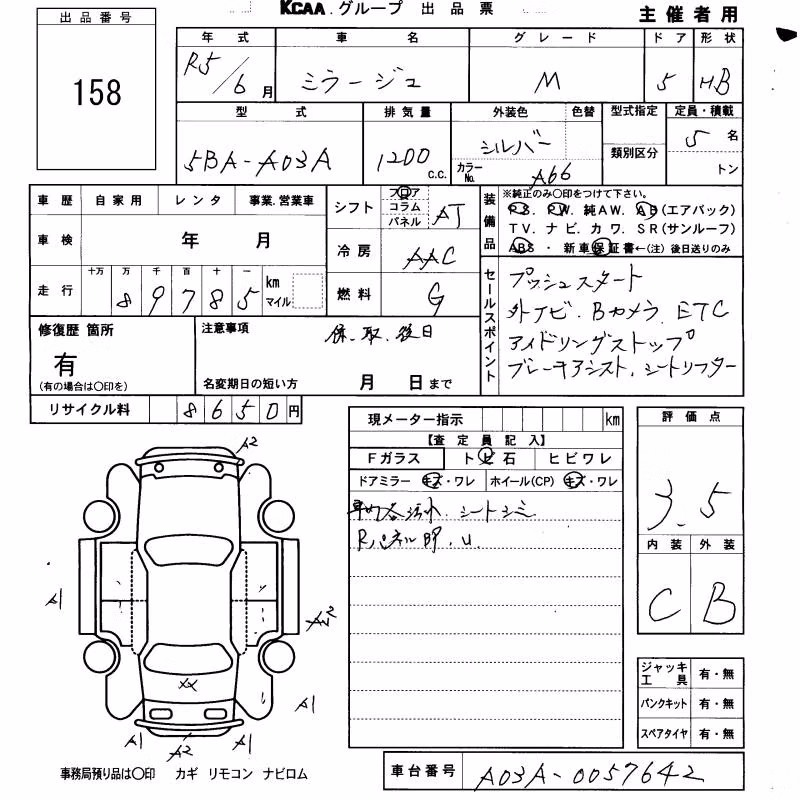 KCAA.グループ 出品票
主催者用
出品番号
158
年式 車名 グレード ドア 形状
R5/6月 ミラージュ M 5 HB
型式 排気量 外装色 色替 型式指定 定員・積載
5BA-A03A 1200 c.c. シルバー 類別区分 5名
カラーNo. A66 トン
車歴 自家用 レンタ 事業.営業車
車検 年 月
走行 十万 万 千 百 十 一 km マイル
8 9 7 8 5
シフト フロア コラム パネル AT
冷房 AAC
燃料 G
装備品
※純正のみ○印をつけて下さい。
PS. PW. 純AW. AB(エアバック)
TV. ナビ. カワ. SR(サンルーフ)
ABS ・ 新車保証書←(注) 後日送りのみ
セールスポイント
プッシュスタート
外ナビ. Bカメラ ETC
アイドリングストップ
ブレーキアシスト. シートリフター
修復歴 箇所
有
(有の場合は○印を)
注意事項 保.取.後日
名変期日の短い方 月 日まで
リサイクル料 8650円
現メーター指示 km
【査定員記入】
Fガラス トビ石 ヒビワレ
ドアミラー キズ・ワレ ホイール(CP) キズ・ワレ
車内 汚れ. シートシミ
Rパネル U.
評価点
3.5
内装 外装
C B
ジャッキ 工具 有・無
パンクキット 有・無
スペアタイヤ 有・無
A2
A1
A1
A1
A2
XX
事務局預り品は○印 カギ リモコン ナビロム
車台番号 A03A-0057642